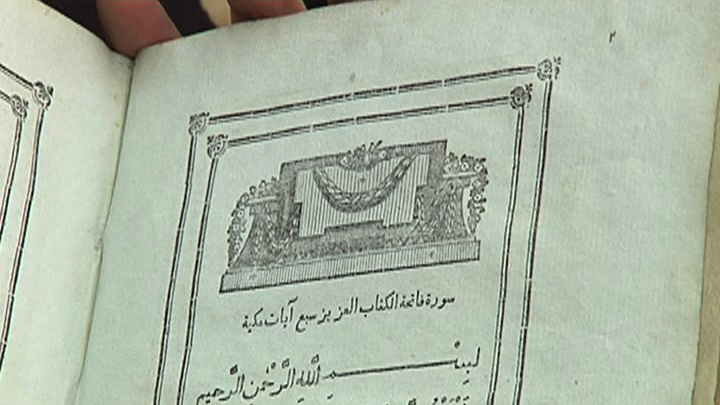 ٢
سورة فاتحة الكتاب العزيز سبع آيات مكية
بِسْمِ اللَّهِ الرَّحْمَٰنِ الرَّحِيمِ